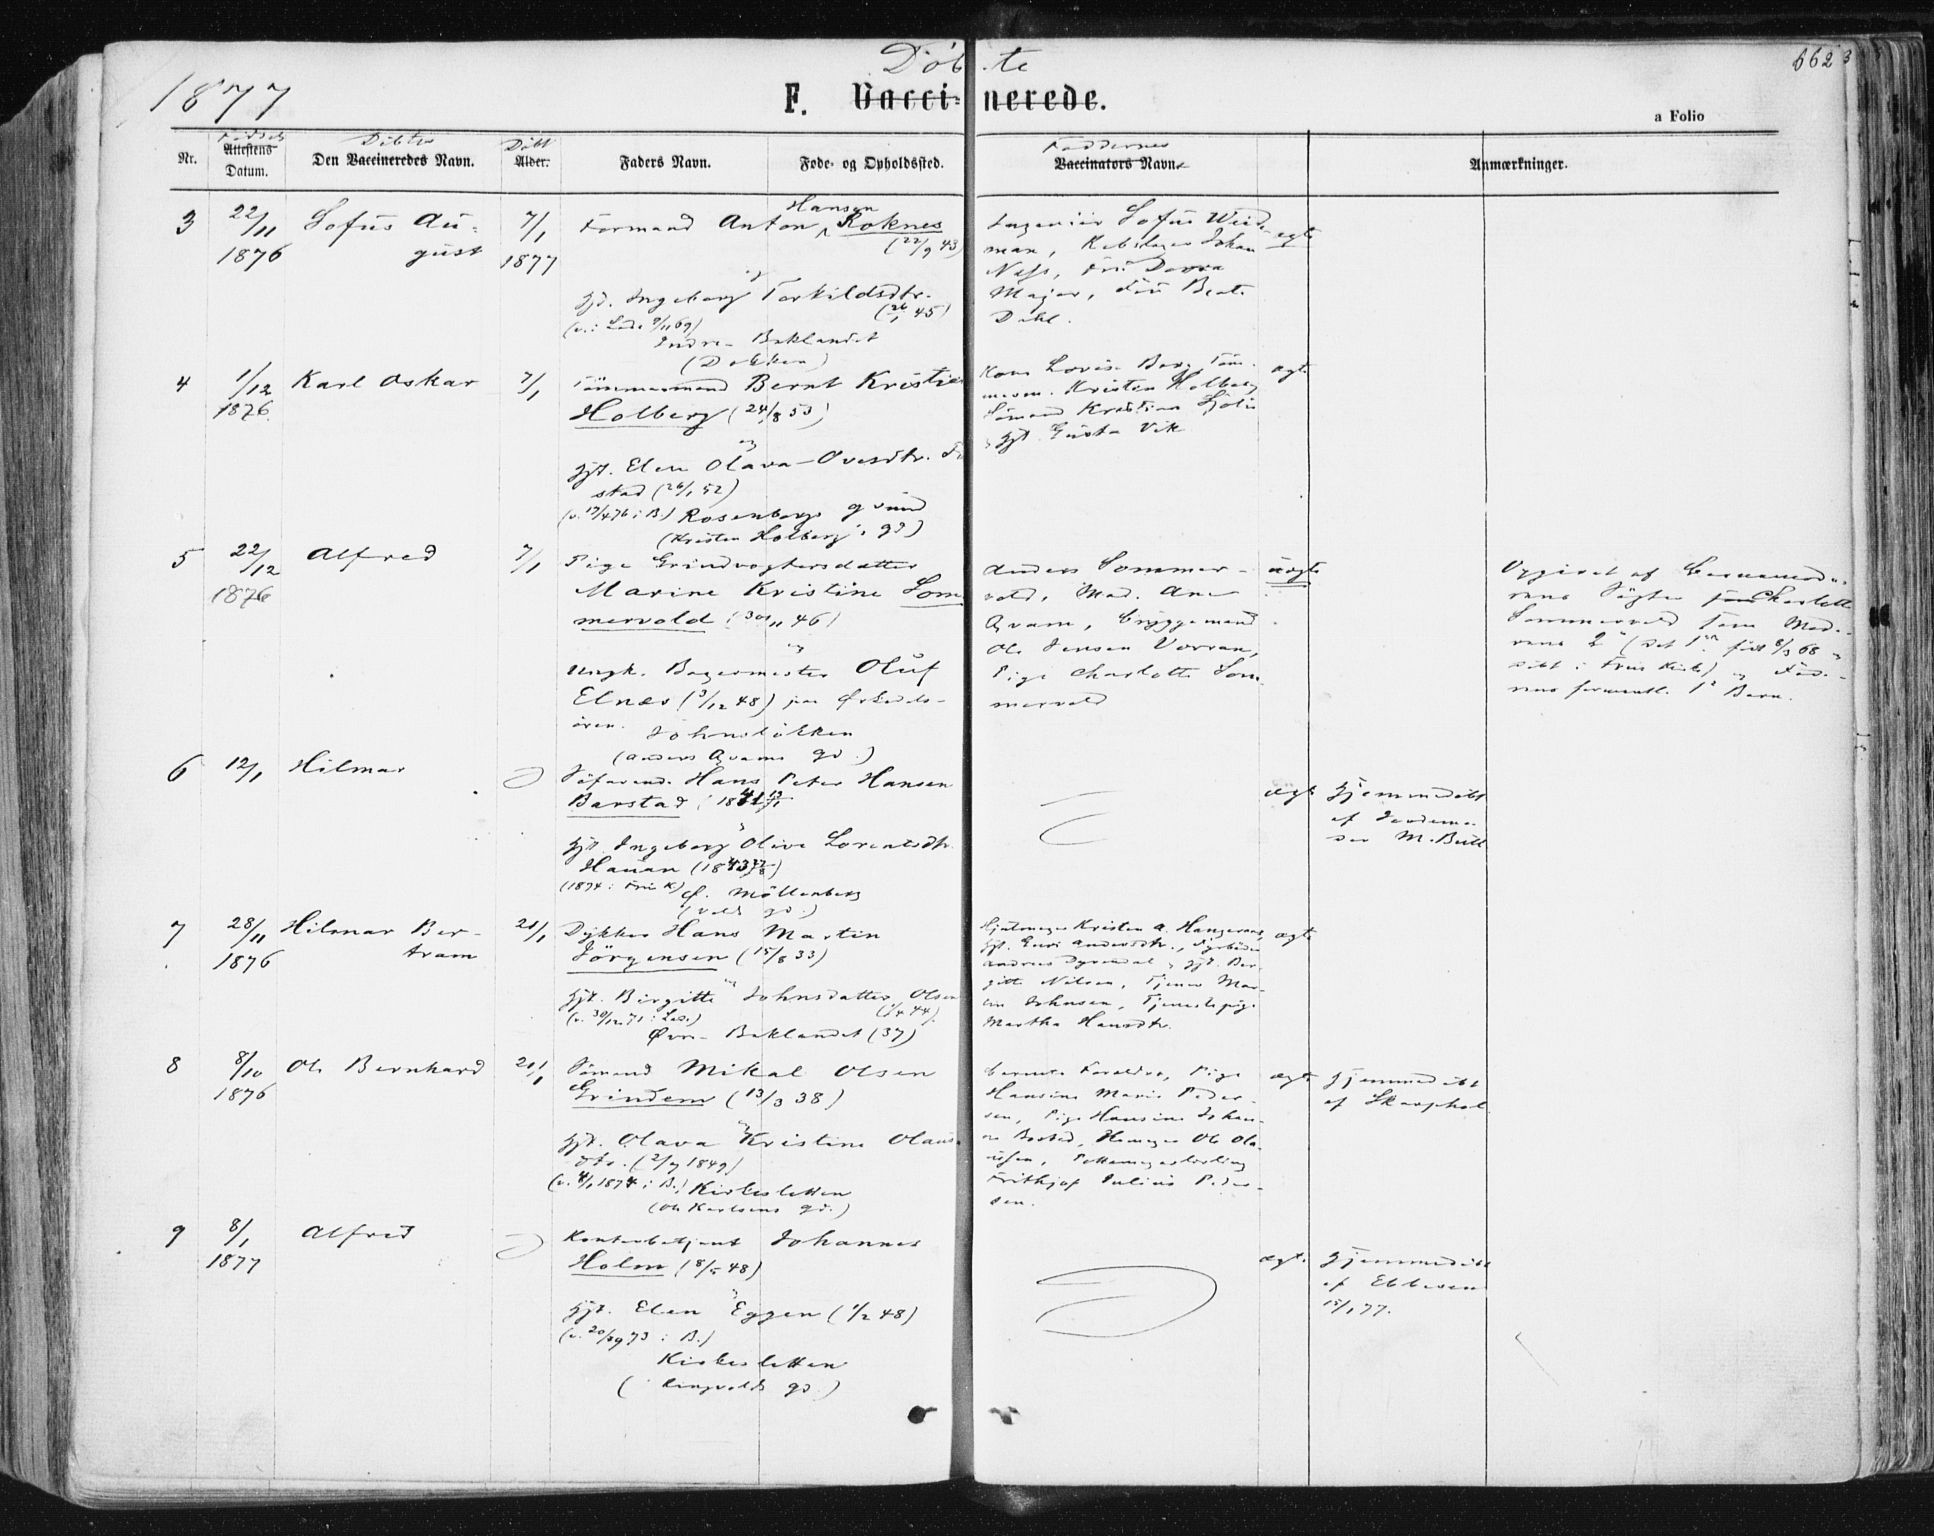 Döbte
662
1877
F. Vaccinerede.
a Folio
Nr.
Fødsels
Attestens
Datum.
Döbtes
Den Vaccineredes Navn.
Döbt
Alder.
Faders Navn.
Føde- og Opholdssted.
Faddernes
Vaccinators Navn.
Anmærkninger.
3
22/11
1876
Sofus Au-
gust
7/1
1877
Hansen
Formand Anton Roknes
(22/9 43)
og
Hst. Ingeborg Torkildsdtr.
(26/1 45)
(v. i Lade 9/11 69)
Indre Baklandet
Ingeniör Sofus Weide-
man, Rebslager Johan
Næss, Fru Dorra
Majer, Fru Beate
Dahl.
ægte
4
1/12
1876
Karl Oskar
7/1
Tömmermand Bernt Kristian
Holberg (24/8 53)
og
Hst. Elen Olava Ovesdtr.
stad (26/1 52)
(v. 17/4 76 i B.) Rosenborgs grund
(Kristen Holbergs gd)
Kone Lovise Berg, Töm-
merm. Kristen Holberg
Sömand Kristian
Gusta Vik
ægte
5
22/12
1876
Alfred
7/1
Pige Grindvogtersdatter
Marine Kristine Som-
mervold (30/11 46)
og
Ungk. Bagermester Oluf
Elnæs (3/12 48) paa Orkedals-
ören.
Johnslökken
(Anders Qvams gd.)
Anders Sommer-
vold, Mad. Ane
Qvam, Bryggemand
Ole Jensen Vorran,
Pige Charlotte Som-
mervold
uægte
Opgivet af Barnemod-
rens Söster Charlotte
Sommervold som Mod-
rens 2det (det 1ste födt 8/3 68
döbt i Frue Kirke) og Fad-
rens forment. 1ste Barn.
6
12/1
Hilmar
Söfarende Hans Peter Hansen
Barstad
Hst. Ingeborg Olive Lorentsdtr.
Hauan
(1874 i Frue K) Ø. Möllenberg
ægte
Hjemmedöbt
af Jordemo-
der M. Bull
7
28/11
1876
Hilmar Ber-
tram
21/1
Dykker Hans Martin
Jörgensen (15/8 33)
og
Hst. Birgitte Johnsdatter Olsen
(v. 30/12 71 i Lade)
Øvre Baklandet (37)
Hjulmager Kristen A. Haugeraas,
Hst. Guri Andersdtr., Fyrböder
Andreas Dyrendal, Hst. Ber-
gitte Nilsen, Tjener Mar-
tin Johnsen, Tjenestepige
Martha Hansdtr.
ægte
8
8/10
1876
Ole Bernhard
21/1
Sömand Mikal Olsen
Grindem (13/3 38)
og
Hst. Olava Kristine Olaus-
dtr. (2/7 1849)
(v. 4/1 1874 i B.) Kirkesletten
(Ole Karlsens gd.)
Barnets Foreldre, Pige
Hansine Marie Peder-
sen, Pige Hansine Johan-
ne Bostad, Ole Ola-
ussen, Pottemagerlærling
Frithjof Julius Peder-
sen.
ægte
Hjemmedöbt
af Skarphol
9
8/1
1877
Alfred
Kontorbetjent Johannes
Holm (8/5 48)
og
Hst. Elen Eggen (1/2 48)
(v. 20/9 73 i B.)
Kirkesletten
(Ringvolds gd.)
ægte
Hjemmedöbt
af Ebbesen
15/1 77.